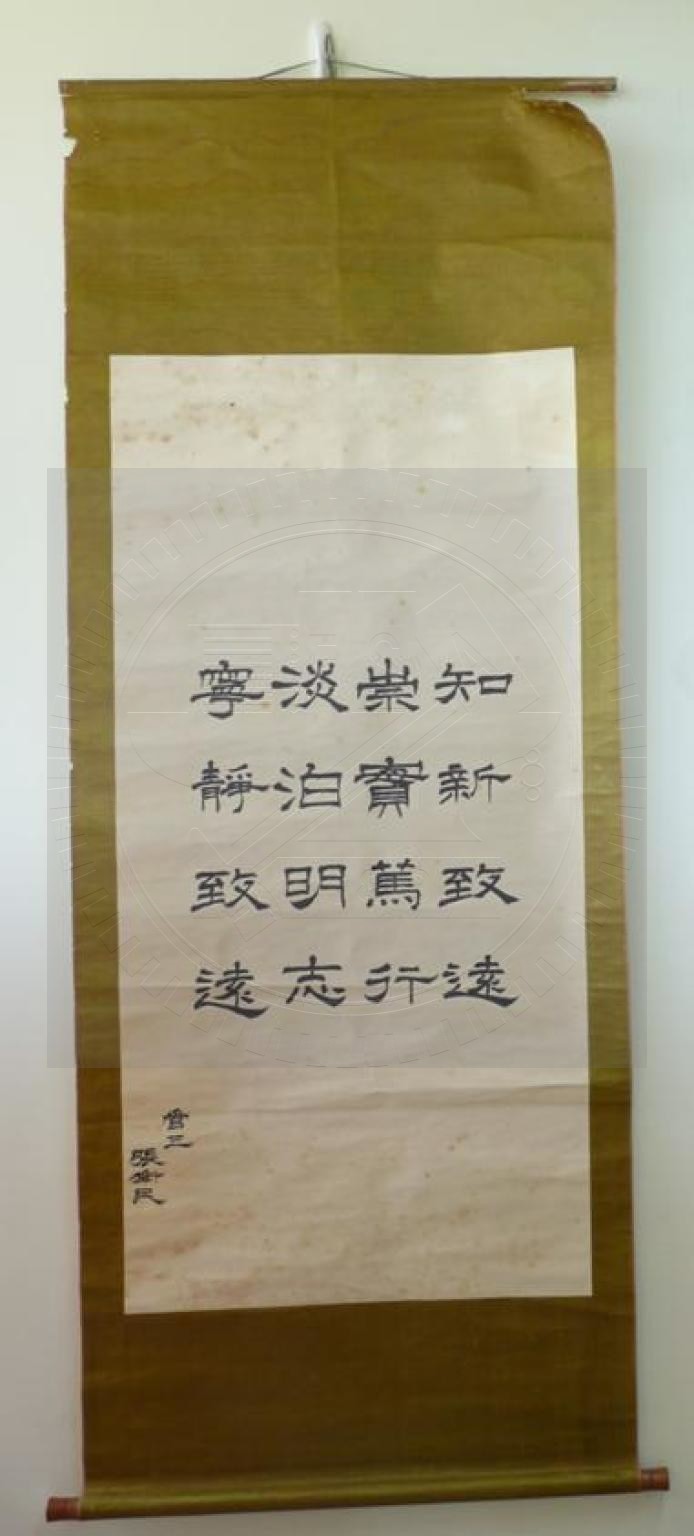 知新致遠
崇實篤行
淡泊明志
寧靜致遠
管三
張衡民